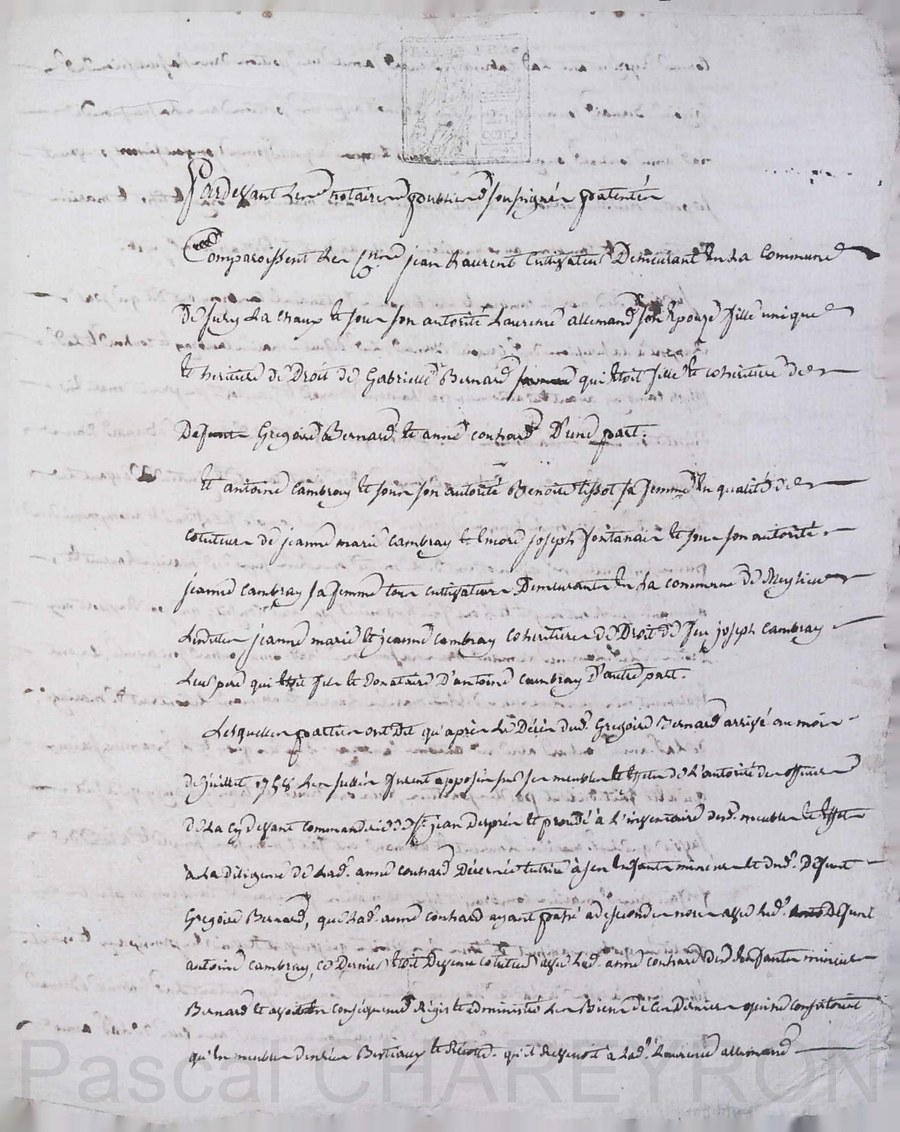 Pardevant les notaires publics soussignés patentés
Comparoissent les Cns. jean Laurent Cultivateur Demeurant En La Commune
De Jury La Chaux Et sous son autorité Laurence allemand son Epouze fille unique
Et heritiere de Droit de Gabrielle Bernard qui Etoit fille Et coheritiere de
Defunt Gregoire Bernard Et anne conhard D'une part.
Et antoine Cambray Et sous son autorité Benoite tissot sa femme En qualité de
cotuteurs de jeanne marie Cambray Et joseph fontanair Et sous son autorité
jeanne Cambray sa femme tous cultivateurs Demeurants En La commune de Meyzieu
Lesdites jeanne marie Et jeanne Cambray coheritieres De Droit De feu joseph Cambray
Leur pere qui Etoit fils Et Donataire D'antoine Cambray D'autre part.
Lesquelles parties ont Dit qu'après Le Décès dud. Gregoire Bernard arrivé au mois
de juillet 1758 Les scellés furent apposés sur ses meubles Et Effets De L'autorité des officiers
de La cy devant commanderie de St. jean Et procedé à L'inventaire desd. meubles Et Effets
à La diligence de Lad. anne conhard Décernée tutrice à ses Enfants mineurs Et dud. Défunt
Gregoire Bernard, que Lad. anne conhard ayant passé a desecondes noces avec Led. Défunt
antoine Cambray, ce Dernier Etoit Devenu cotuteur avec Lad. anne conhard desd. Enfants mineurs
Bernard Et avoit En consequence Régis Et administré Les Biens de ces Derniers qui ne consistoient
qu'En meubles denrées Bestiaux Et Récoltes. qu'il Revenoit a Lad. Laurence allemand
Pascal CHAREYRON